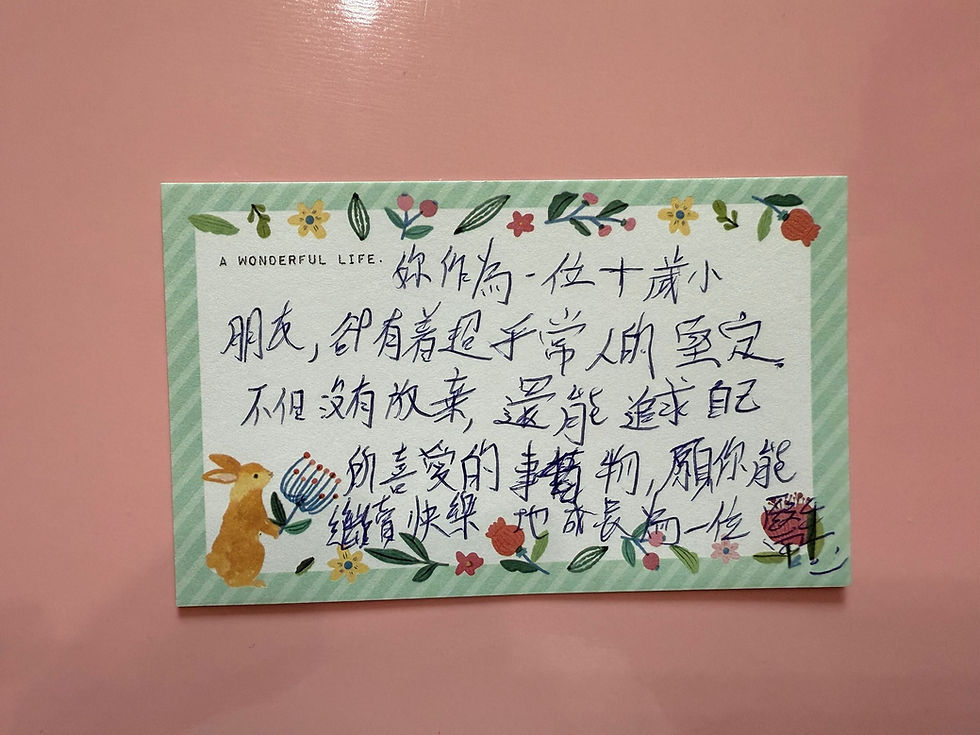 A WONDERFUL LIFE.
妳作為一位十歲小
朋友,卻有着超乎常人的堅定。
不但沒有放棄,還能追求自己
所喜愛的事物,願你能
繼續快樂地成長為一位醫生